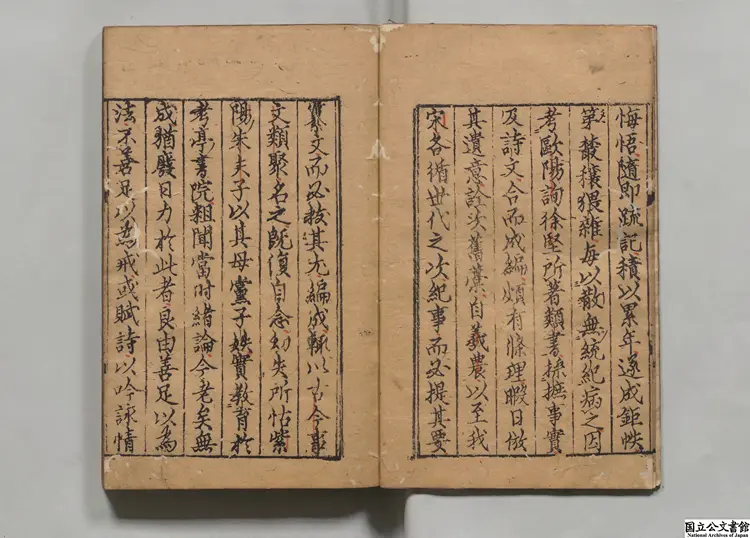 悔悟隨即疏記積以累年遂成鉅帙
第叢穰猥雜每以散無統紀病之因
考歐陽詢徐堅所著類書採摭事實
及詩文合而成編頗有條理暇日倣
其遺意詮次舊藁自羲農以至我
宋各循世代之次紀事而必提其要
纂文而必拔其尤編成輒以古今事
文類聚名之既復自念幼失所怙紫
陽朱夫子以其母黨子姪實教育於
考亭書院粗聞當時緒論今老矣無
成猶發日力於此者良由善足以為
法不善足以為戒或賦詩以吟詠情
国立公文書館
National Archives of Japan